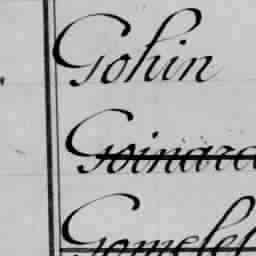 Gohin
Goinard
Gomelet